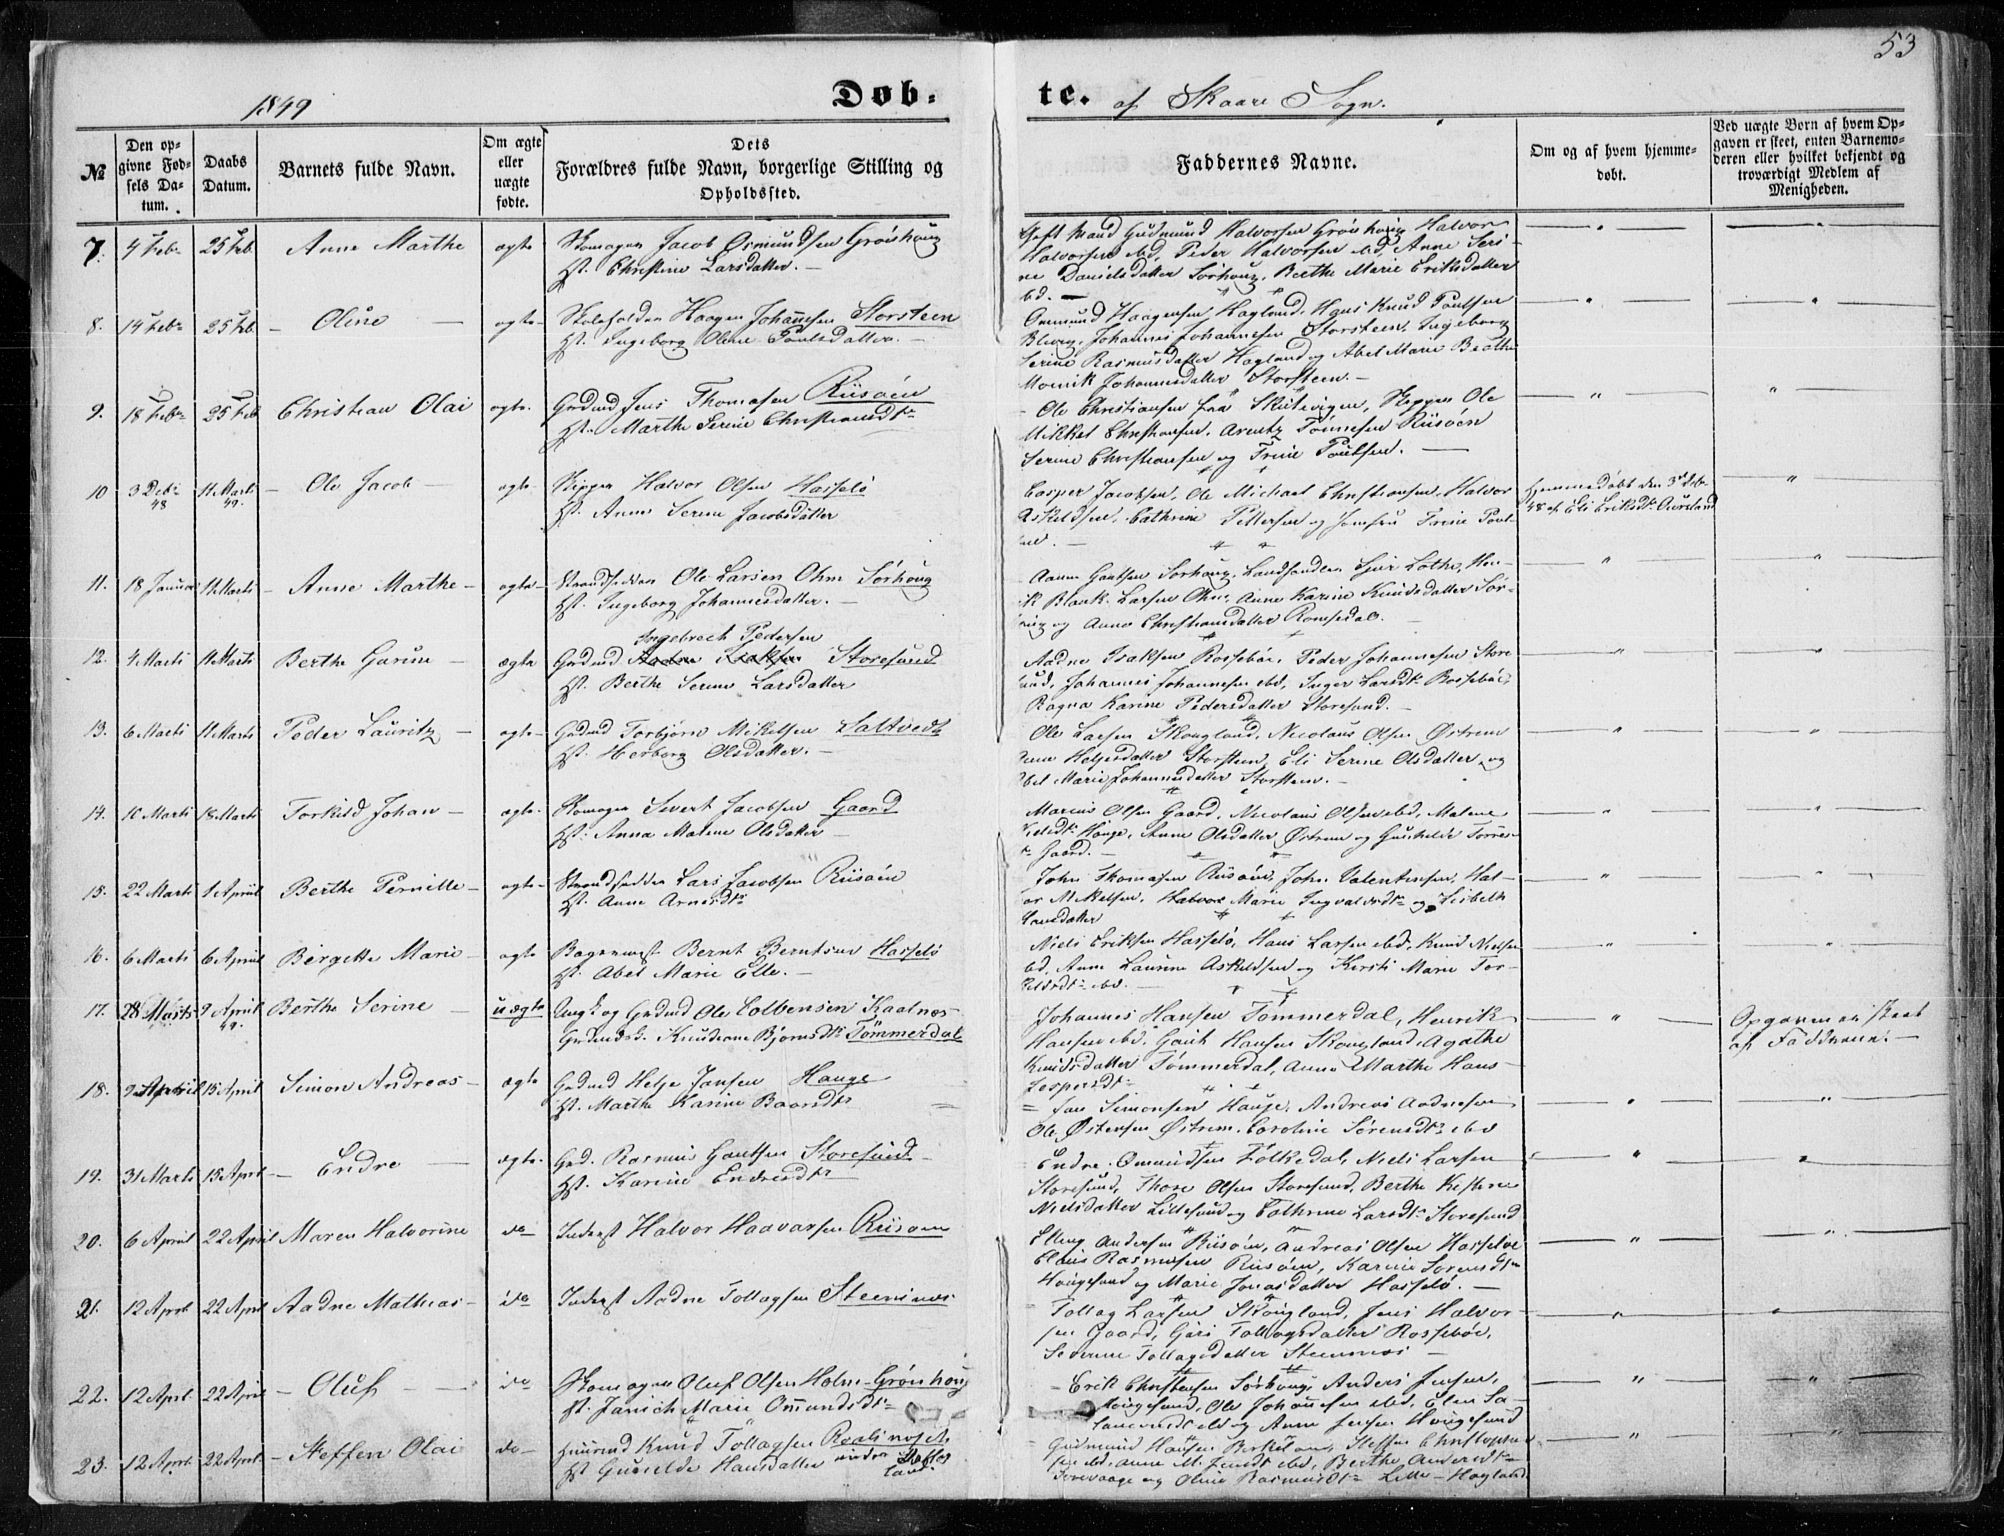 53
1849
Døb-
te.
af Skaare Sogn.
№
Den op-
givne Fød-
sels Da-
tum.
Daabs
Datum.
Barnets fulde Navn.
Om ægte
eller
uægte
fødte.
Dets
Forældres fulde Navn, borgerlige Stilling og
Opholdssted.
Faddernes Navne.
Om og af hvem hjemme-
døbt.
Ved uægte Børn af hvem Op-
gaven er skeet, enten Barnemo-
deren eller hvilket bekjendt og
troværdigt Medlem af
Menigheden.
7. 4 Febr 25 Feb Anne Marthe ægte Skomager Jacob Osmundsen Grønhoug
H. Christine Larsdatter.
Gift Mand Gudmund Halvorsen Grønhoug Halvor
Halvorsen ibd, Peder Halvorsen ibd, Anne Seri-
ne Danielsdatter Sørhoug, Berthe Marie Eriksdatter
ibd.
8. 14 Febr 25 Feb Oline ægte Skoleholder Haagen Johannesen Storsteen
H. Ingeborg Oline Poulsdatter.
Ommund Haagensen Hagland, Hans Knud Poulsen
Johannes Johannesen Storsteen, Ingeborg
Serine Rasmusdatter Hagland og Abel Marie Berthe
Johannesdatter Storsteen.
9. 18 Febr 25 Feb Christian Olai ægte Grdmd Jens Thomasen Riisøen
H. Marthe Serine Christiansdtr
Ole Christiansen fra Skutevigen, Skipper Ole
Mikkel Christiansen, Arentz Tønnesen Riisøen
Serine Christiansen og Trine Poulsen.
10 3 Debr 48 11 Marts 49. Ole Jacob ægte Skipper Halvor Olsen Hasselø
H. Anne Serine Jacobsdatter
Casper Jacobsen, Ole Michael Christiansen, Halvor
Askildsen, Cathrine Pettersen og Jomfru Trine Poul-
sen.
Hjemmedøbt den 3 Debr
48 af Eli Eriksdtr Aursland
11. 18 Januar 11 Marts Anne Marthe ægte Strandsidder Ole Larsen Ohm Sørhoug
H. Ingeborg Johannesdatter.
Aamn Gautsen Sørhoug, Landhandler Sjur Lothe, Hen-
ik Blank Larsen Ohm, Anne Karine Knudsdatter Sør-
houg og Anne Christiansdatter Romsedal.
12. 4 Marts 11 Marts Berthe Gurine ægte Ingebrech Pedersen
Grdmd Aadne Isaksen Storesund
H. Berthe Serine Larsdatter
Aadne Isaksen Rossebøe, Peder Johannesen Store
sund, Johannes Johannesen ibd, Inger Larsdtr Rossebøe,
Ragna Karine Pedersdatter Storesund.
13. 6 Marts 11 Marts Peder Lauritz ægte Grdmd Torbjørn Mikelsen Saltvedt
H. Herborg Olsdatter.
Ole Larsen Skougland, Nicolaus Olsen Østrem
Helgesdatter Storsteen, Eli Serine Olsdatter og
Abel Marie Johannesdatter Storsteen.
14. 10 Marts 18 Marts Torkild Johan ægte Skomager Sivert Jacobsen Gaard
H. Anna Malene Olsdatter
Marcus Olsen Gaard, Nicolaus Olsen ibd, Malene
Hauge, Anne Olsdatter Østrem og Gunhilde Torres-
dtr Gaard.
15. 22 Marts 1 April Berthe Pernille ægte Strandsidder Lars Jacobsen Riisøen
H. Anne Arnesdtr
John Thomasen Riisøen, John Valentinsen, Hal-
vor Mikelsen, Marie Ingvaldsdtr og Lisbeth
Hansdatter
16. 6 Marts 6 April Birgette Marie ægte Bagermest Bernt Berntsen Hasselø
H. Abel Marie Elle.
Niels Eriksen Hasselø, Hans Larsen ibd, Knud Nielsen
ibd, Anne Laurine Askildsen og Kirsti Marie Tor-
kildsdtr ibd.
17. 28 Marts 9 April 49. Berthe Serine uægte Ungk. og Grdmd Ole Colbensen Kaatnæs
Knudiane Bjørnsdtr Tømmerdal
Johannes Hansen Tømmerdal, Henrik
Hansen ibd, Gaut Hansen Skougland, Agathe
Knudsdatter Tømmerdal, Anne Marthe Hans
Jespersdtr
Opgaven er skeet
af Fadderne.
18. 2 April 15 April Simon Andreas ægte Grdmd Helje Jansen Hauge
H. Marthe Karine Baardsdtr
Jan Simonsen Hauge, Andreas Aadnesen
Ole Østensen Østrem, Caroline Sørensdtr ibd
19. 31 Marts 15 April Endre ægte Grd. Rasmus Gautsen Storesund
H. Karine Endresdtr
Endre Omundsen Folkedal, Niels Larsen
Storesund, Thore Olsen Storesund, Berthe Kistine
Nielsdatter Lillesund og Cathrine Larsdtr Storesund
20. 6 April 22 April Maren Halvorine do Inderst Halvor Haavarsen Riisøen
Elling Andersen Riisøen, Andreas Olsen Hasseløe
Claus Rasmusen Riisøen, Karine Sørensdtr
Hougesund og Marie Jonasdatter Hasselø.
21. 12 April 22 April Aadne Mathias do Inderst Aadne Tollagsen Steensnæs
Tollag Larsen Skougland, Jens Halvor-
sen Gaard, Guri Tollagsdatter Rossebøe,
Severine Tollagsdatter Steensnæs
22. 12 April 22 April Oluf do Skomager Oluf Olsen Holm Grønhoug
H. Janich Marie Omundsdtr
Erik Christensen Sørhoug, Anders Jensen,
Hougesund, Ole Johannesen ibd, Elen Sa-
ibd og Anne Jensen Hougesund
23. 12 April 22 April Steffen Olai do Huusmd Knud Tollagsen Raalinoset
H. Gunilde Hansdatter under
Gudmund Hansen Steffen Christophersen
ibd, Anne M. ibd, Berthe Andersdtr
og Oline Rasmusdtr Lille-Hagland